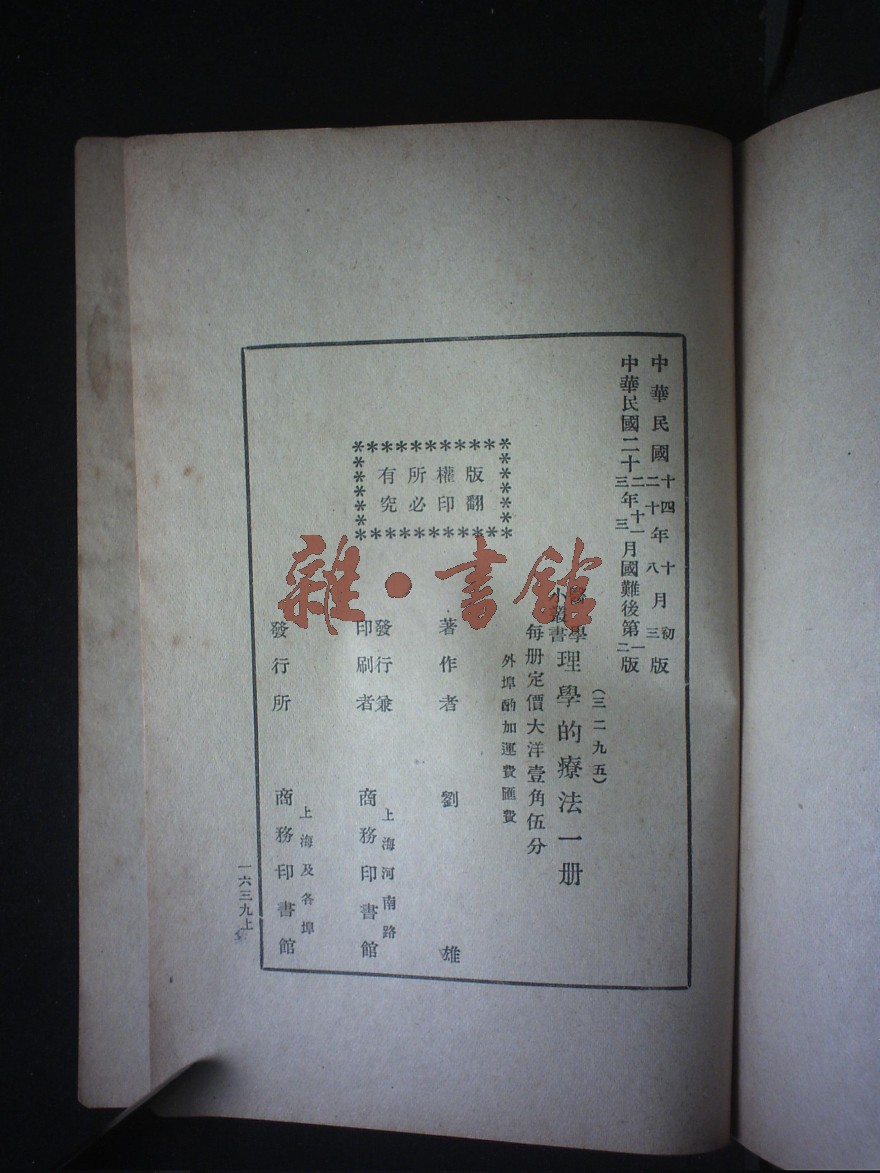 中華民國十四年十月初版
二十年八月三版
中華民國二十二年十一月國難後第一版
三年三二
(三二九五)
醫學小叢書 理學的療法一册
每册定價大洋壹角伍分
外埠酌加運費匯費
版權所有
翻印必究
著作者 劉雄
發行兼印刷者 上海河南路 商務印書館
發行所 上海及各埠 商務印書館
一六三九上
雜·書館